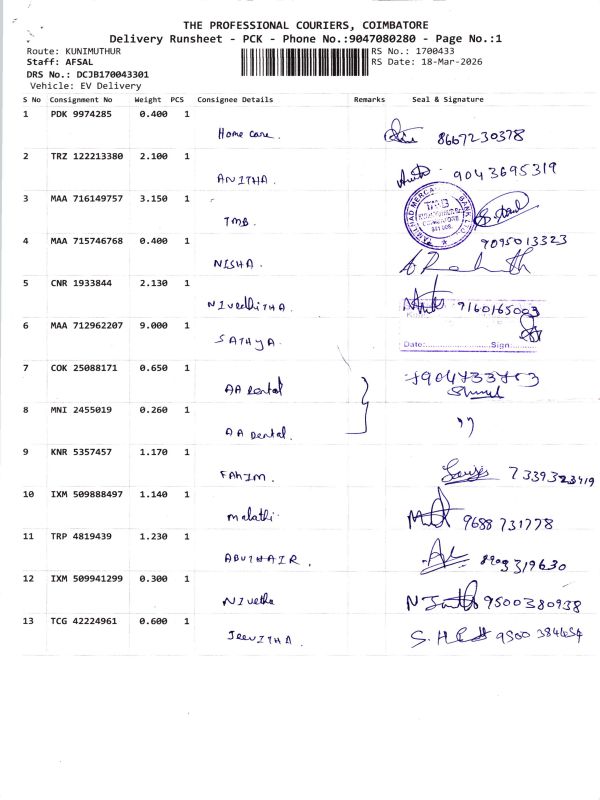 THE PROFESSIONAL COURIERS, COIMBATORE
Delivery Runsheet - PCK - Phone No.:9047080280 - Page No.:1
Route: KUNIMUTHUR
RS No.: 1700433
Staff: AFSAL
RS Date: 18-Mar-2026
DRS No.: DCJB170043301
Vehicle: EV Delivery
S No Consignment No Weight PCS Consignee Details Remarks Seal & Signature
1 PDK 9974285 0.400 1
Home care. 8667230378
2 TRZ 122213380 2.100 1
ANITHA. 9043695319
3 MAA 716149757 3.150 1
TMB. TMB
4 MAA 715746768 0.400 1 9095013323
NISHA.
5 CNR 1933844 2.130 1
NIVedhitHA. 9160165003
6 MAA 712962207 9.000 1
SATHYA.
Date: Sign
7 COK 25088171 0.650 1
AA Dental
8 MNI 2455019 0.260 1
AA Dental. ''
9 KNR 5357457 1.170 1
FAHIM. 7339323419
10 IXM 509888497 1.140 1
malathi. 9688 731778
11 TRP 4819439 1.230 1
ABUTHAIR. 8903319630
12 IXM 509941299 0.300 1
NIvetha 9500380938
13 TCG 42224961 0.600 1
JeeVITHA. 9500 384454